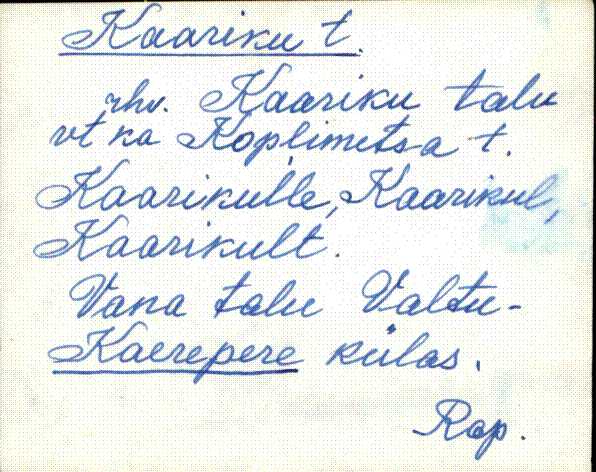 Kaariku t.
rhv. Kaariku talu
vt ka Koplimetsa t.
Kaarikulle, Kaarikul,
Kaarikult.
Vana talu Valtu-
Kaerepere külas.
Rap.